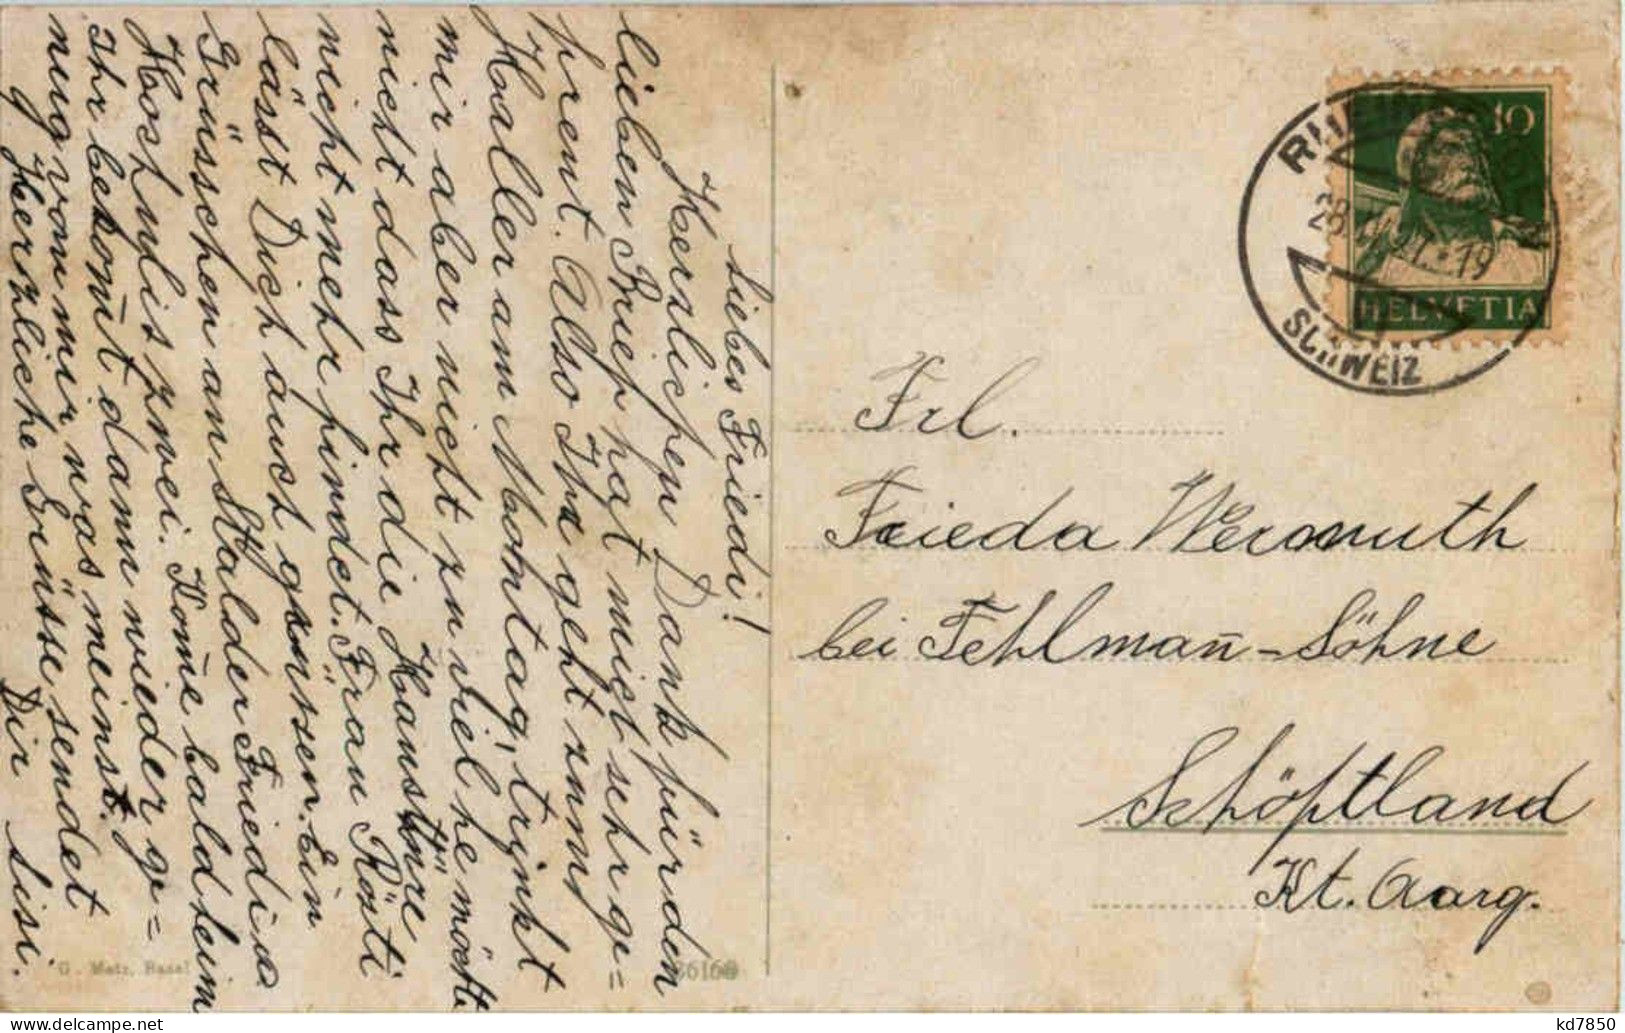 Liebes Friedi!
Herzlichen Dank für den
lieben Brief hat mich sehr ge=
freut. Also Ihr geht zum
Haller am Montag, trinkt
mir aber nicht zu viel he möchte
nicht dass Ihr die Haustüre
nicht mehr findet. Frau Rösti
lässt Dich auch grüssen. Ein
Grüsschen an Stalder Frieda u.
Hochulis zwei. Kom̄e bald heim
Ihr bekom̄t dann wieder ge=
nug von mir was meinst.
Herzliche Grüsse sendet
Dir Lisi.
G. Metz, Basel
36166
10
HELVETIA
28. 21.-19
SCHWEIZ
Frl.
Frieda Wermuth
bei Fehlman̄-Söhne
Schöftland
Kt. Aarg.
kd7850